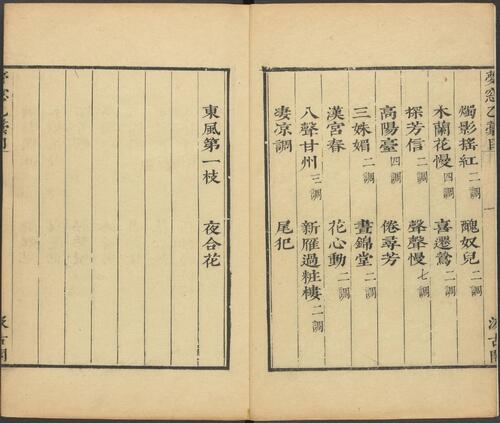 燭影搖紅二調 醜奴兒二調
木蘭花慢四調 喜遷鶯二調
探芳信二調 聲聲慢七調
高陽臺四調 倦尋芳
三姝媚二調 晝錦堂二調
漢宮春 花心動二調
八聲甘州三調 新雁過粧樓二調
淒凉調 尾犯
東風第一枝 夜合花